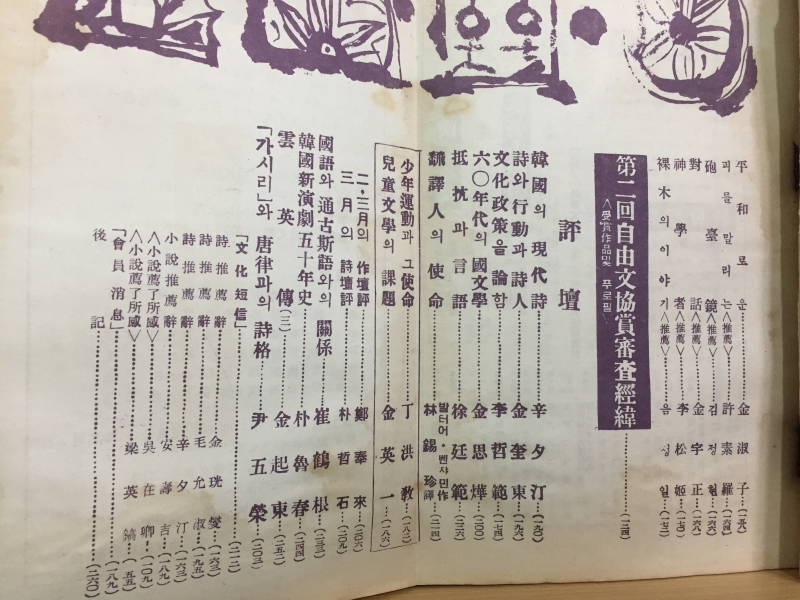 平和로운……金淑子…(一五八)
피를말리는<推薦>…許素羅…(一六四)
砲臺鏡<推薦>…김정웜…(一六六)
對話<推薦>…金宇正…(一六八)
神學者<推薦>…李松姬…(一七〇)
裸木의이야기<推薦>…음성일…(一七二)
第二回自由文協賞審査經緯……(一二四)
<受賞作品및 푸로필>
評壇
韓國의現代詩……辛夕汀…(一九〇)
詩와行動과詩人……金奎東…(一九六)
文化政策을論함……李哲範…(一四)
六〇年代의國文學……金思燁…(二〇〇)
抵抗과言語……徐廷範…(二三六)
飜譯人의使命……발터어・벤쟈민作 林錫珍譯…(二一四)
少年運動과 그使命……丁洪敎…(一八二)
兒童文學의 課題……金英一…(一八六)
二・三月의 作壇評……鄭泰來…(二〇六)
三月의 詩壇評……朴哲石…(二〇九)
國語와 通古斯語와의 關係……崔鶴根…(二三三)
韓國新演劇五十年史……朴魯春…(二四四)
雲英傳(三)……金起東…(二五二)
「가시리」와 唐律과의 詩格……尹五榮…(二〇三)
「文化短信」……(二一二)
詩推薦辭……金珖燮…(一六三)
詩推薦辭……毛允淑…(一九五)
詩推薦辭……辛夕汀…(一六三)
小說推薦辭……安壽吉…(一八九)
<小說薦了所感>……吳在卿…(一〇九)
<小說薦了所感>……梁英鎬…(五五)
「會員消息」……(一八九)
後記……(二六〇)